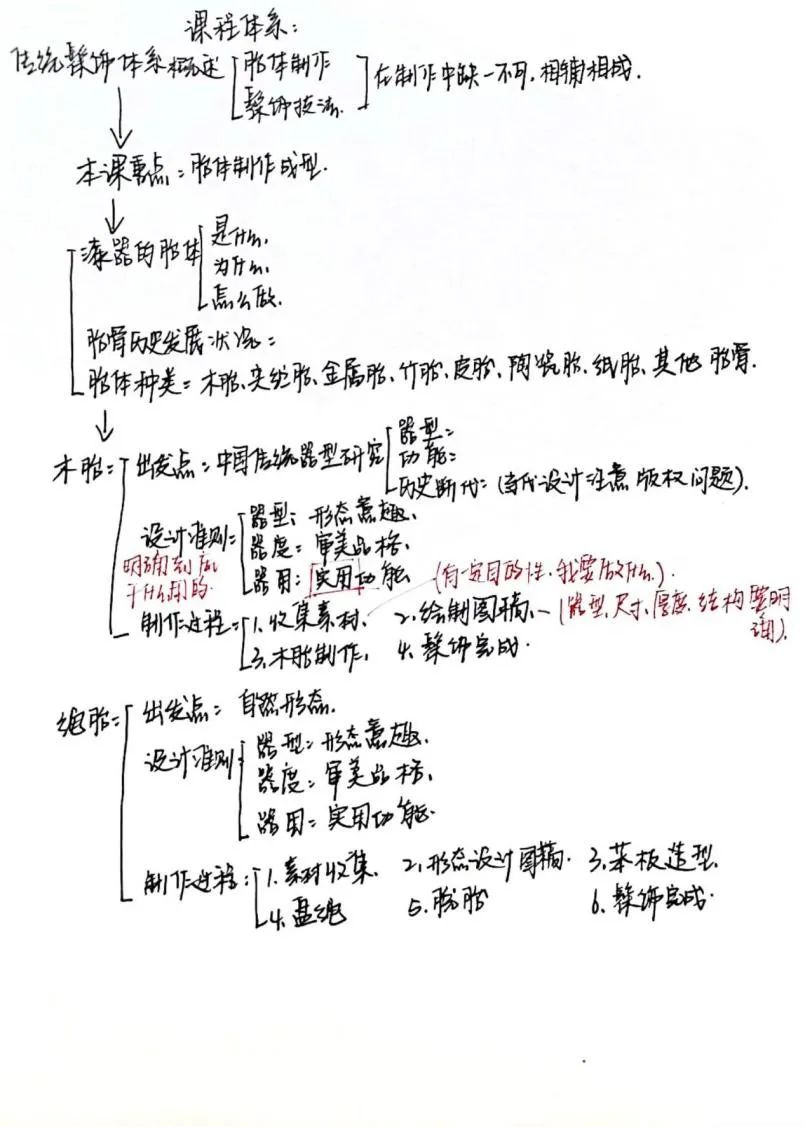 课程体系：
传统髹饰体系概述 胎体制作
髹饰技法.
在制作中缺一不可，相辅相成.
本课重点：胎体制作成型.
漆器的胎体 是什么.
为什么.
怎么做.
胎骨历史发展状况：
胎体种类：木胎、夹纻胎、金属胎、竹胎、皮胎、陶瓷胎、纸胎、其他胎骨.
木胎： 出发点：中国传统器型研究 器型：
功能：
历史断代：(当代设计注意版权问题).
设计准则： 器型：形态意趣.
器度：审美品格.
器用：实用功能
明确
干什么用的.
(有一定目的性.我要做什么.).
制作过程： 1.收集素材. 2.绘制图稿.—(器型.尺寸.厚度.结构要明
确).
3.木胎制作. 4.髹饰完成.
绳胎： 出发点：自然形态.
设计准则 器型：形态意趣.
器度：审美品格.
器用：实用功能.
制作过程： 1.素材收集. 2.形态设计图稿. 3.苯板造型.
4.盘绳 5.脱胎 6.髹饰完成.